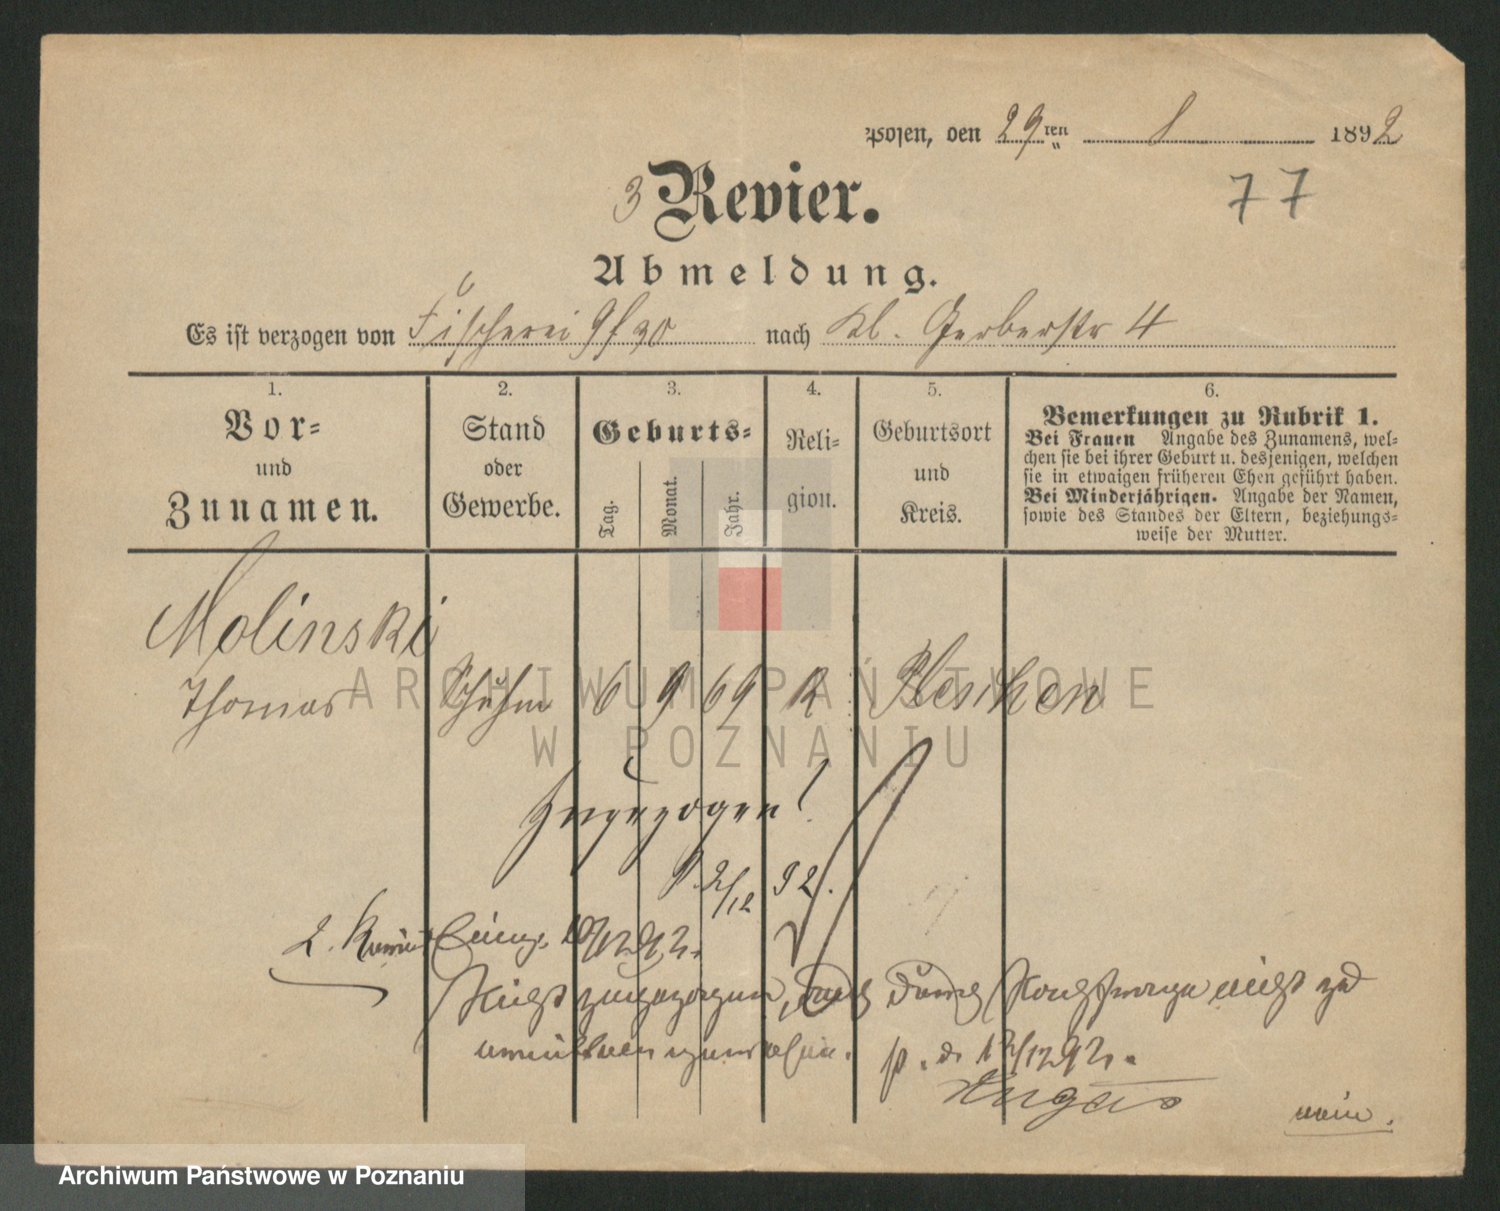 Posen, den 29ten 8 1892
77
3 Revier.
Abmeldung.
Es ist verzogen von Fischerei nach Kl. Gerberstr 4
1.
Vor-
und
Zunamen.
2.
Stand
oder
Gewerbe.
3.
Geburts-
Tag.
Monat.
Jahr.
4.
Reli-
gion.
5.
Geburtsort
und
Kreis.
6.
Bemerkungen zu Rubrik 1.
Bei Frauen Angabe des Zunamens, wel-
chen sie bei ihrer Geburt u. desjenigen, welchen
sie in etwaigen früheren Ehen geführt haben.
Bei Minderjährigen. Angabe der Namen,
sowie des Standes der Eltern, beziehungs-
weise der Mutter.
Molinski
Thomas Schuhm 6 9 69 K Pleschen
ARCHIWUM PAŃSTWOWE
W POZNANIU
Zugezogen!
P. 2/12 92.
2. 10/12 92.
Nicht zugezogen, auch durch Nachfrage nicht zu
ermitteln gewesen. p. d. 12/12 92.
Archiwum Państwowe w Poznaniu